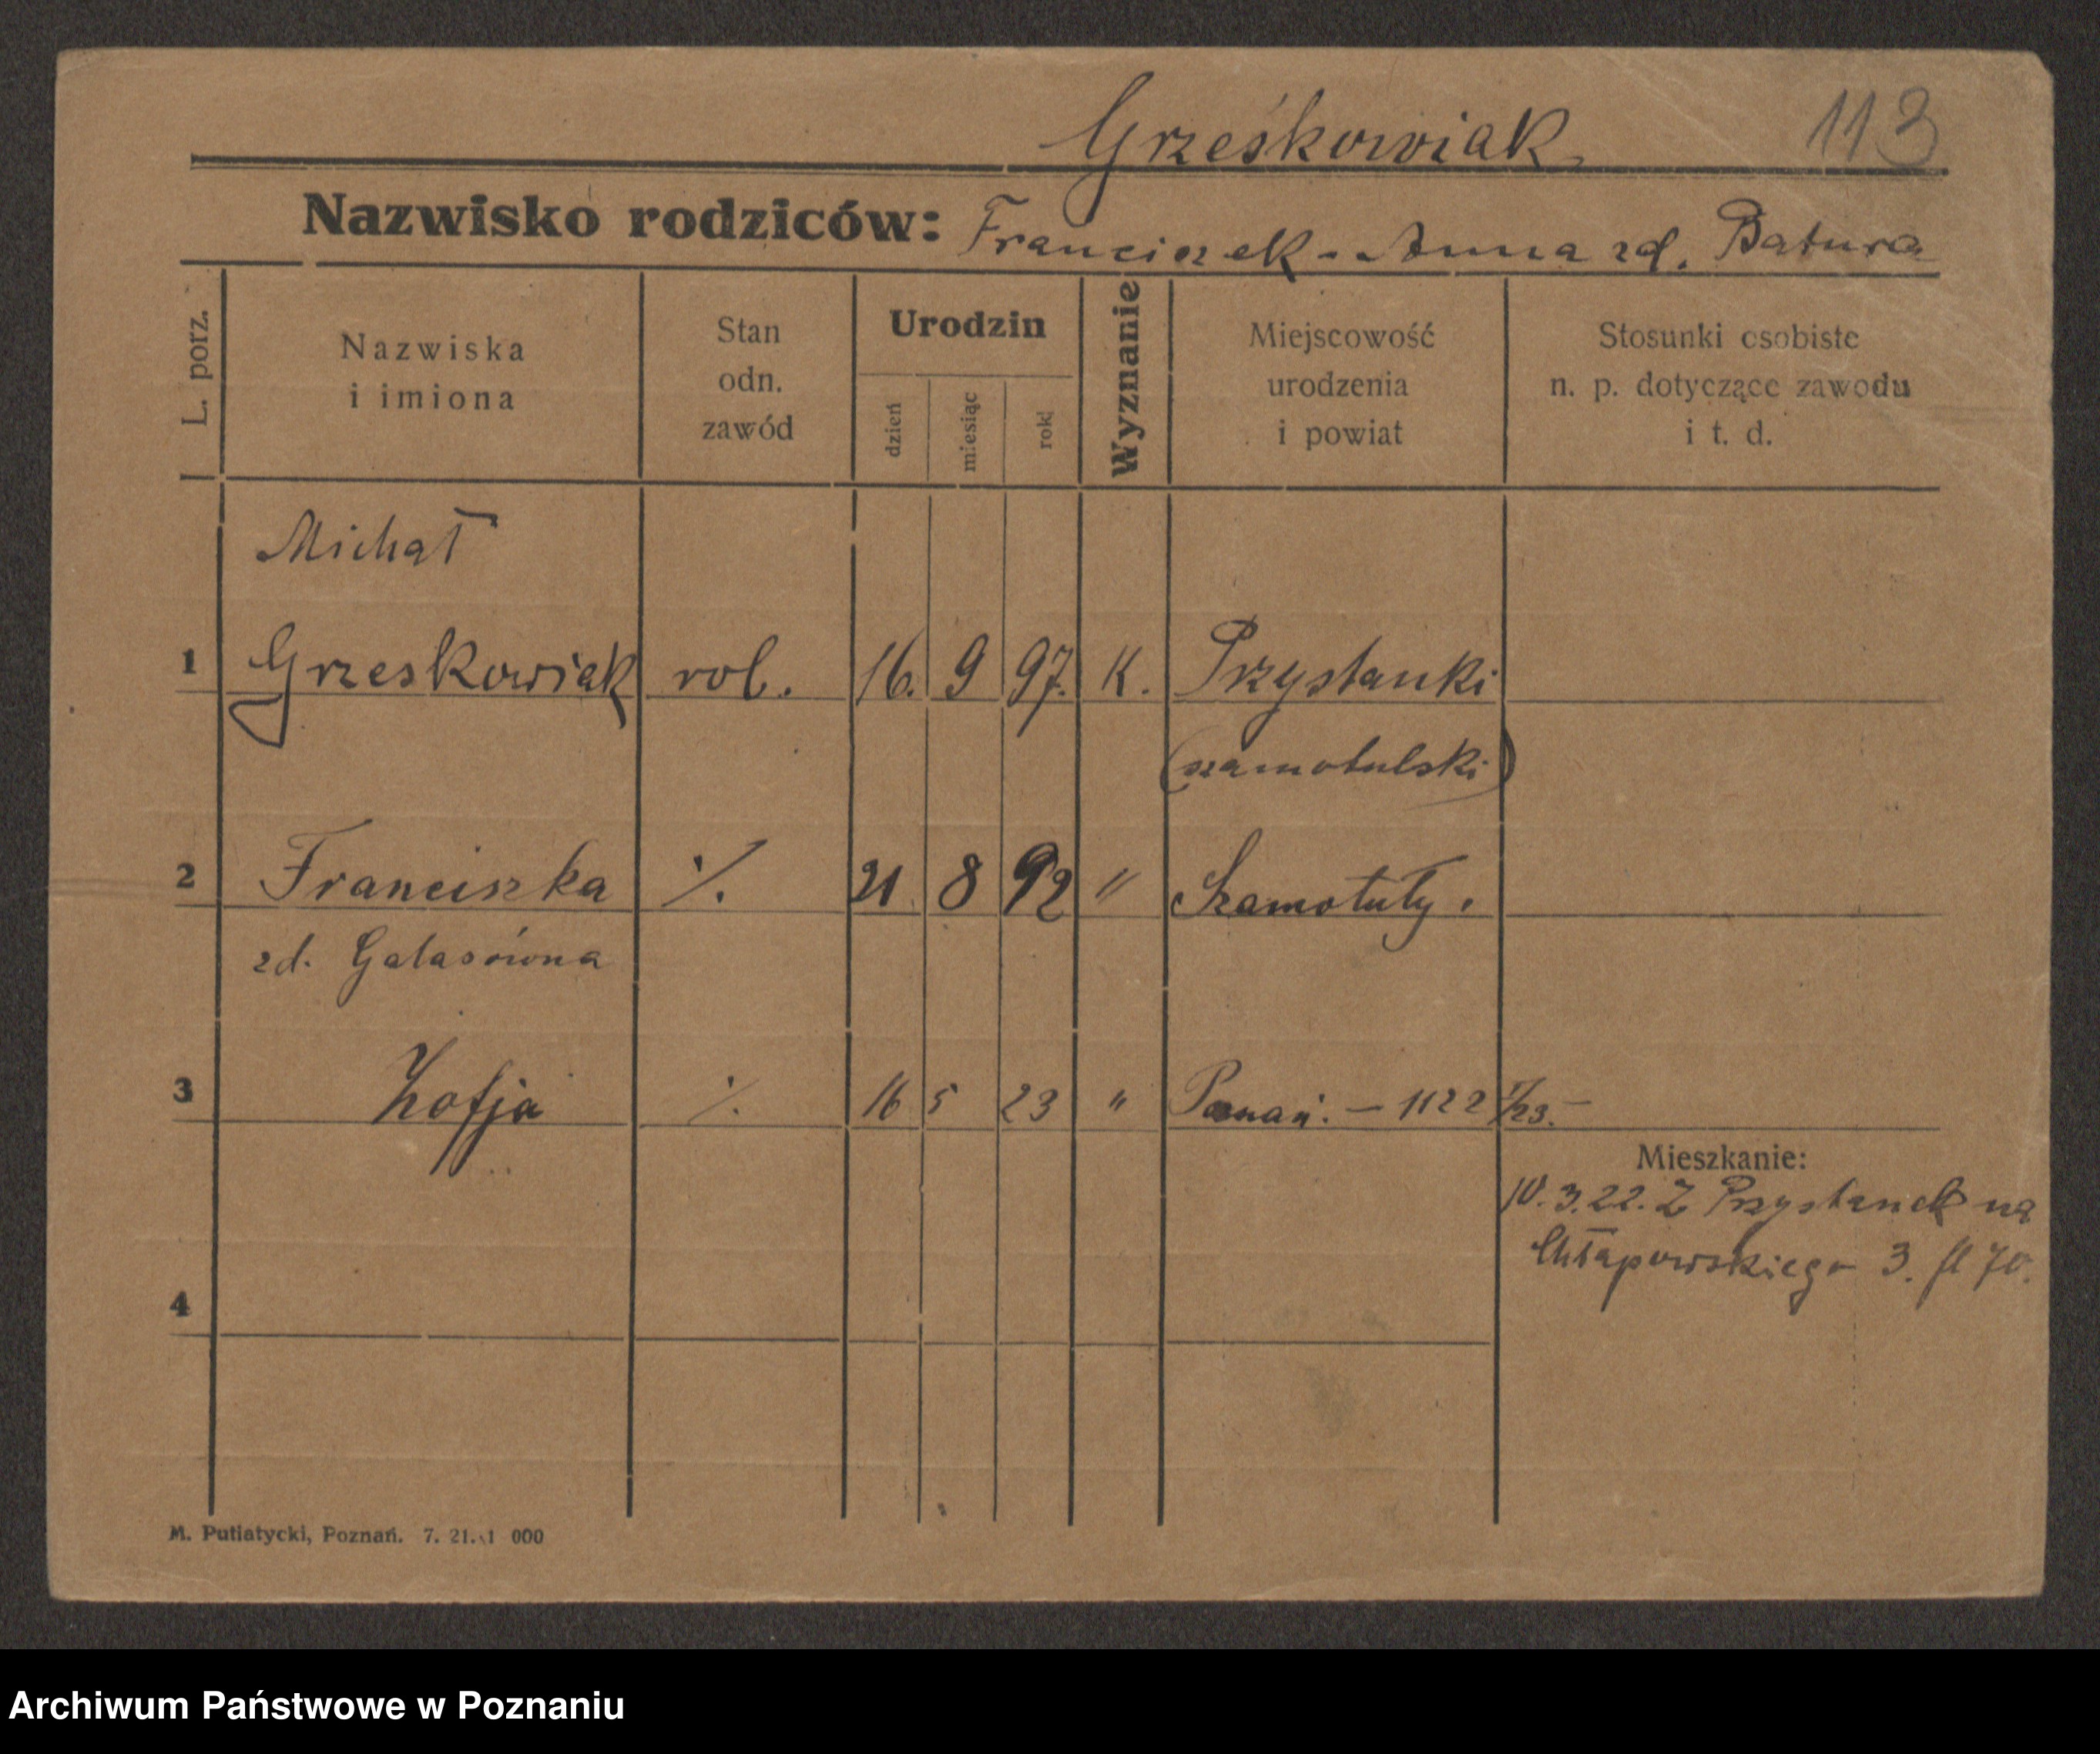 Grześkowiak 113
Nazwisko rodziców: Franciszek - Anna zd. Batura
L. porz.
Nazwiska
i imiona
Stan
odn.
zawód
Urodzin
dzień
miesiąc
rok
Wyznanie
Miejscowość
urodzenia
i powiat
Stosunki osobiste
n. p. dotyczące zawodu
i t. d.
Michał
1 Grzeskowiak rob. 16. 9 97. K. Przystanki
(szamotulski)
2 Franciszka ./. 21 8 92 " Szamotuły.
zd. Galasówna
3 Zofja ./. 16 5 23 " Poznań. — 1122 /23. —
Mieszkanie:
10.3.22. Z Przystanek na
Chłapowskiego 3. 70.
4
M. Putiatycki, Poznań. 7. 21. 1 000
Archiwum Państwowe w Poznaniu